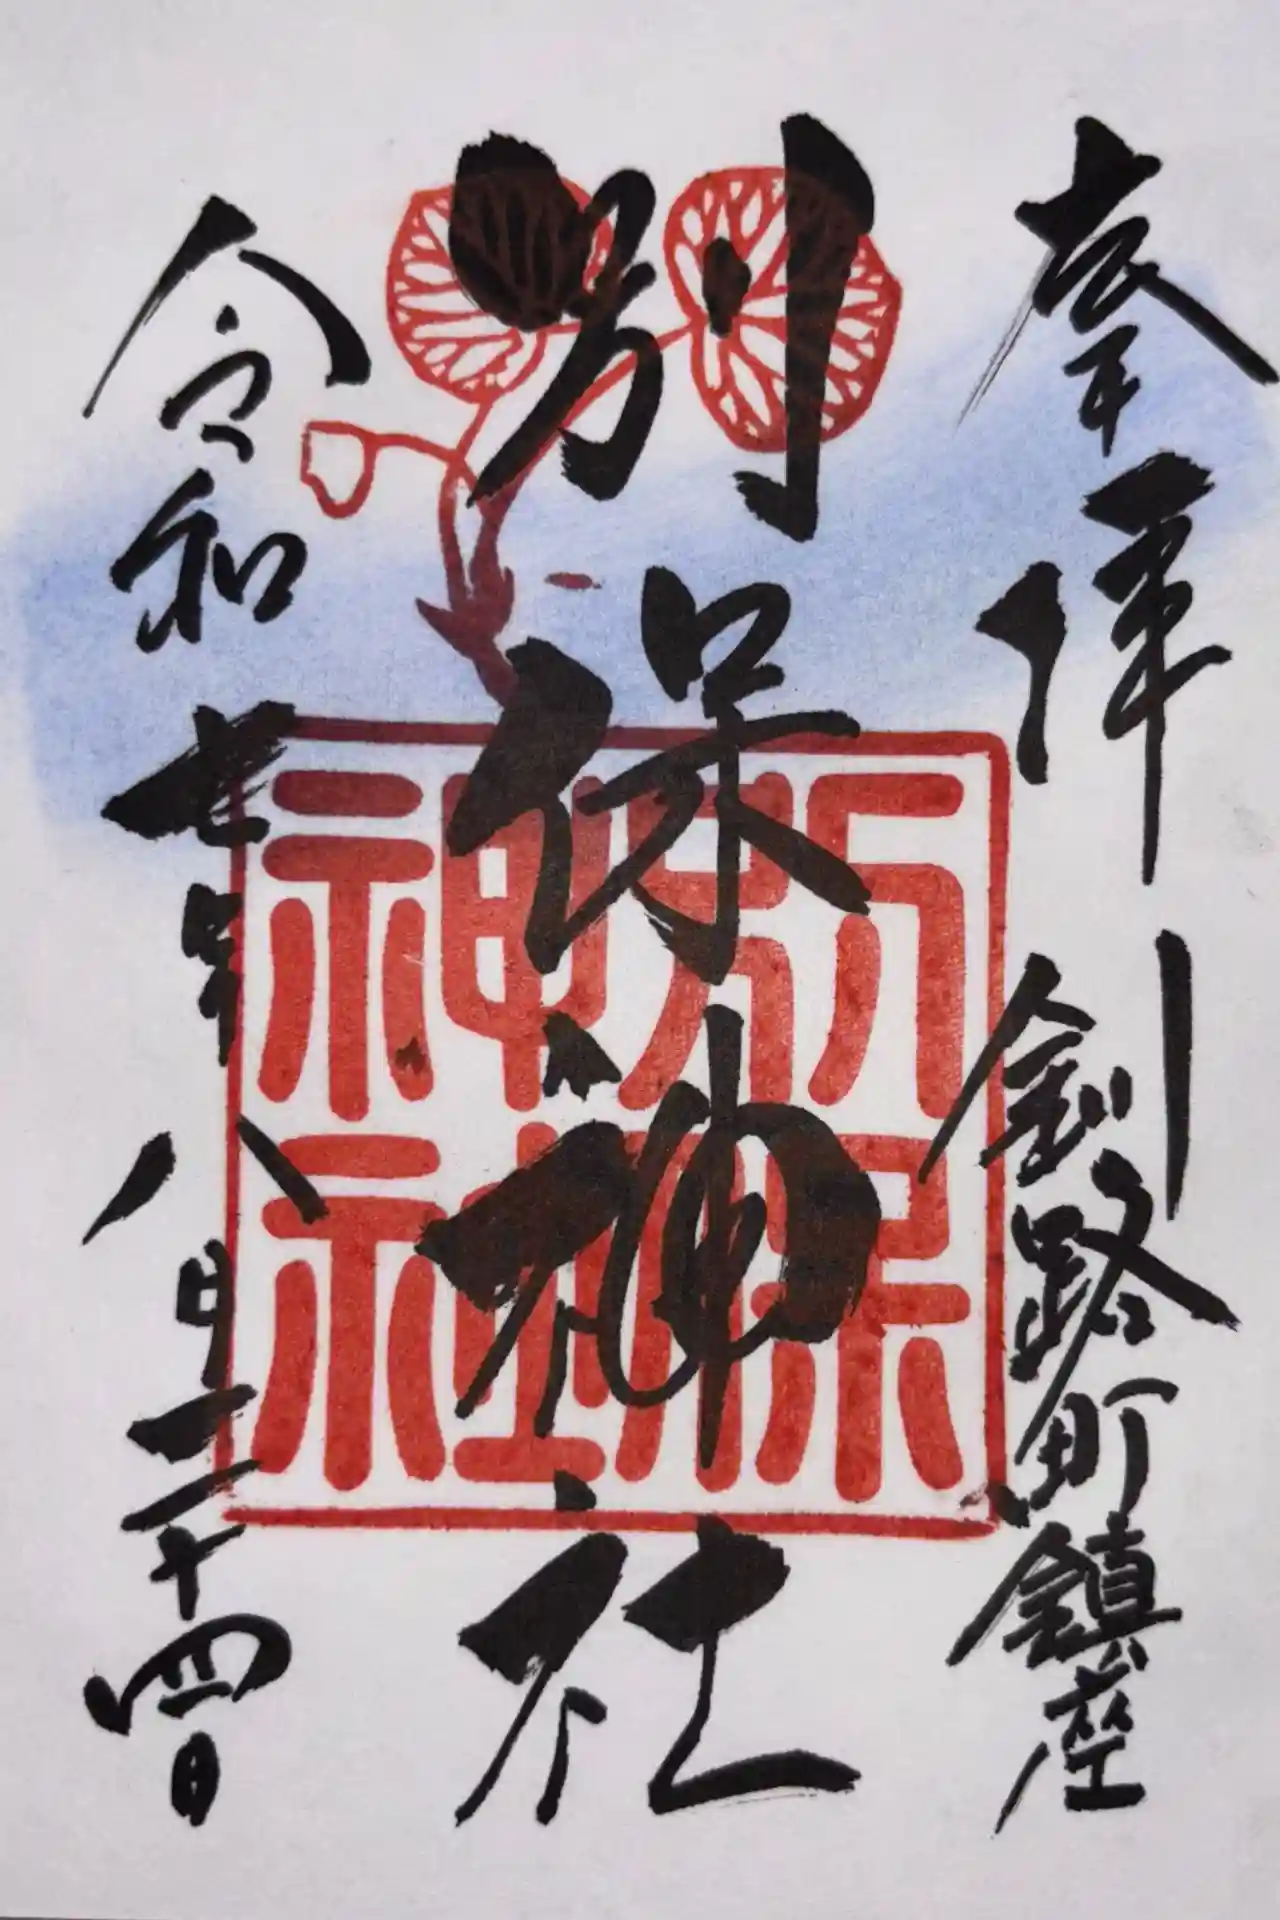 奉拝 釧路町鎮座
別保神社
別保神社
令和七年八月二十四日